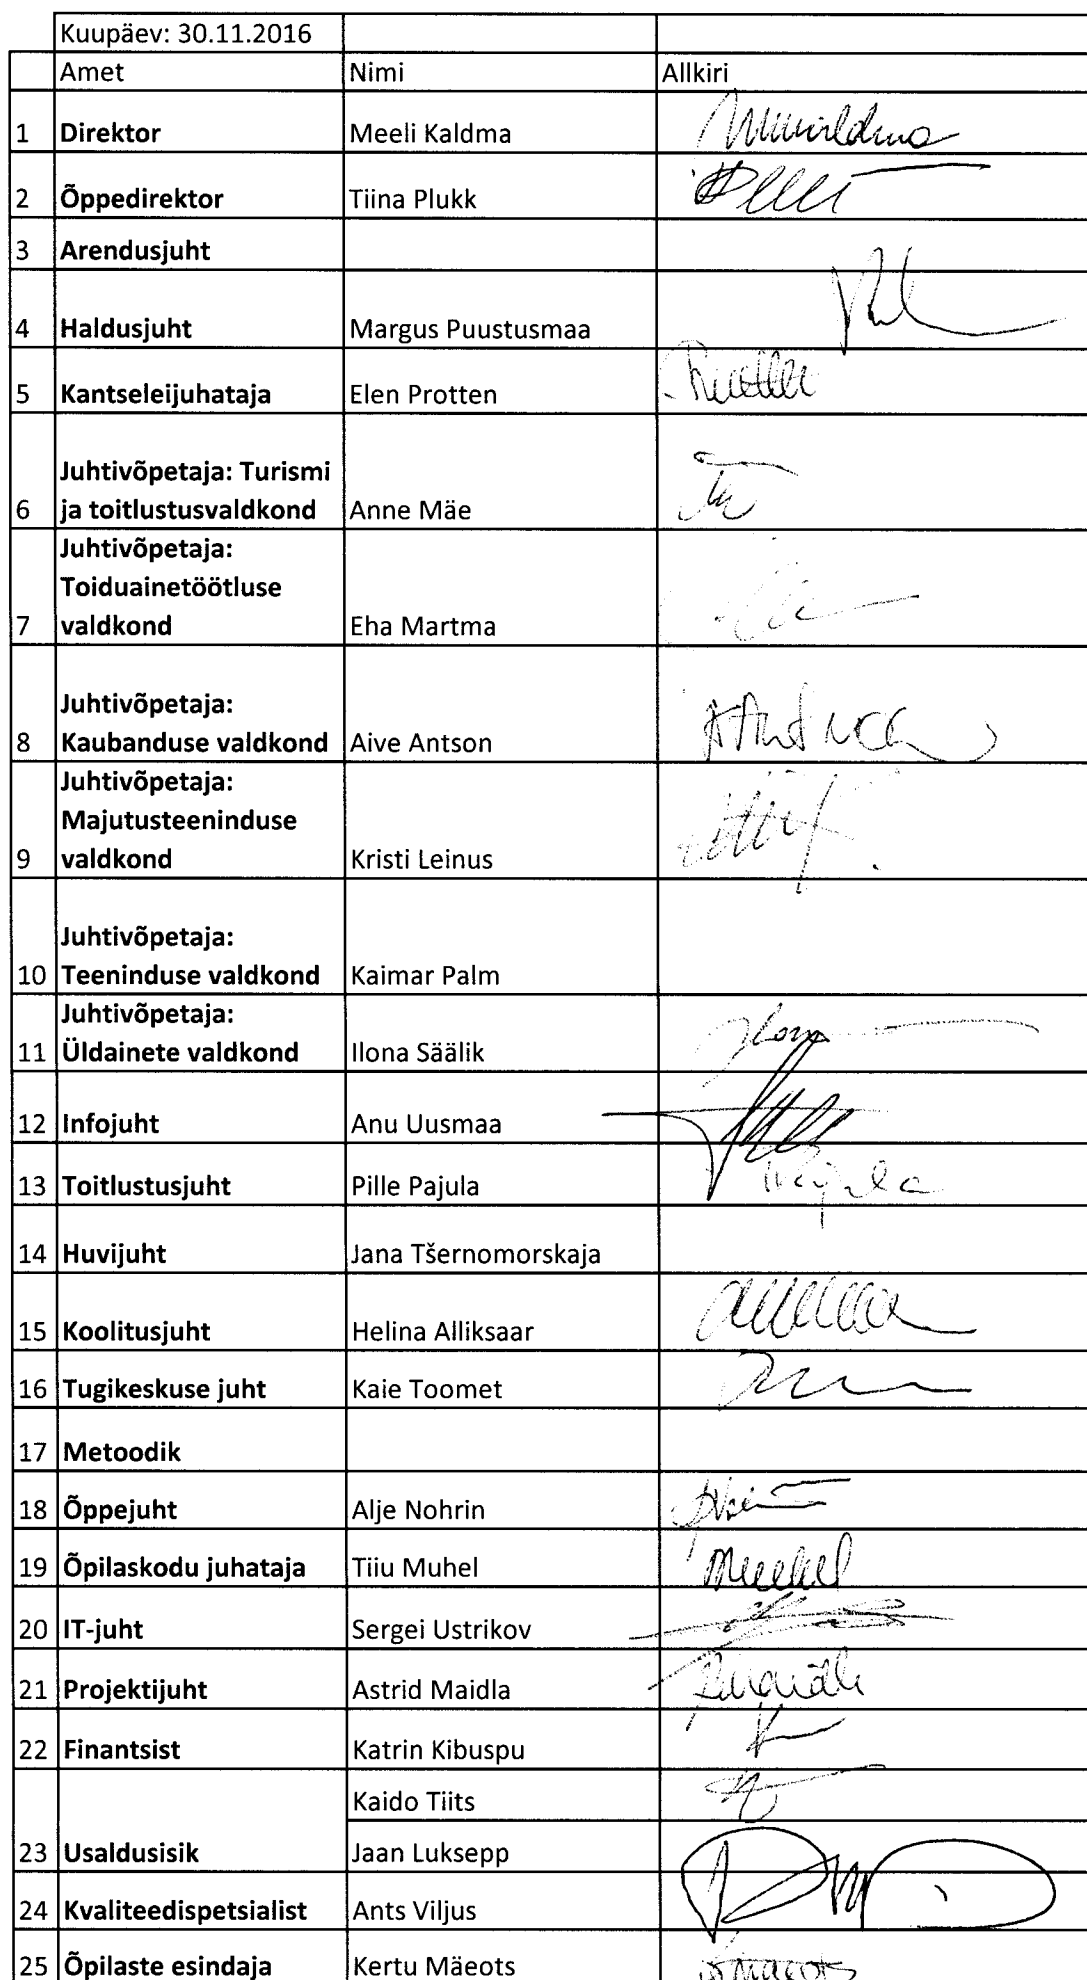 Kuupäev: 30.11.2016
Amet Nimi Allkiri
1 Direktor Meeli Kaldma
2 Õppedirektor Tiina Plukk
3 Arendusjuht
4 Haldusjuht Margus Puustusmaa
5 Kantseleijuhataja Elen Protten
Juhtivõpetaja: Turismi
6 ja toitlustusvaldkond Anne Mäe
Juhtivõpetaja:
Toiduainetöötluse
7 valdkond Eha Martma
Juhtivõpetaja:
8 Kaubanduse valdkond Aive Antson
Juhtivõpetaja:
Majutusteeninduse
9 valdkond Kristi Leinus
Juhtivõpetaja:
10 Teeninduse valdkond Kaimar Palm
Juhtivõpetaja:
11 Üldainete valdkond Ilona Säälik
12 Infojuht Anu Uusmaa
13 Toitlustusjuht Pille Pajula
14 Huvijuht Jana Tšernomorskaja
15 Koolitusjuht Helina Alliksaar
16 Tugikeskuse juht Kaie Toomet
17 Metoodik
18 Õppejuht Alje Nohrin
19 Õpilaskodu juhataja Tiiu Muhel
20 IT-juht Sergei Ustrikov
21 Projektijuht Astrid Maidla
22 Finantsist Katrin Kibuspu
Kaido Tiits
23 Usaldusisik Jaan Luksepp
24 Kvaliteedispetsialist Ants Viljus
25 Õpilaste esindaja Kertu Mäeots